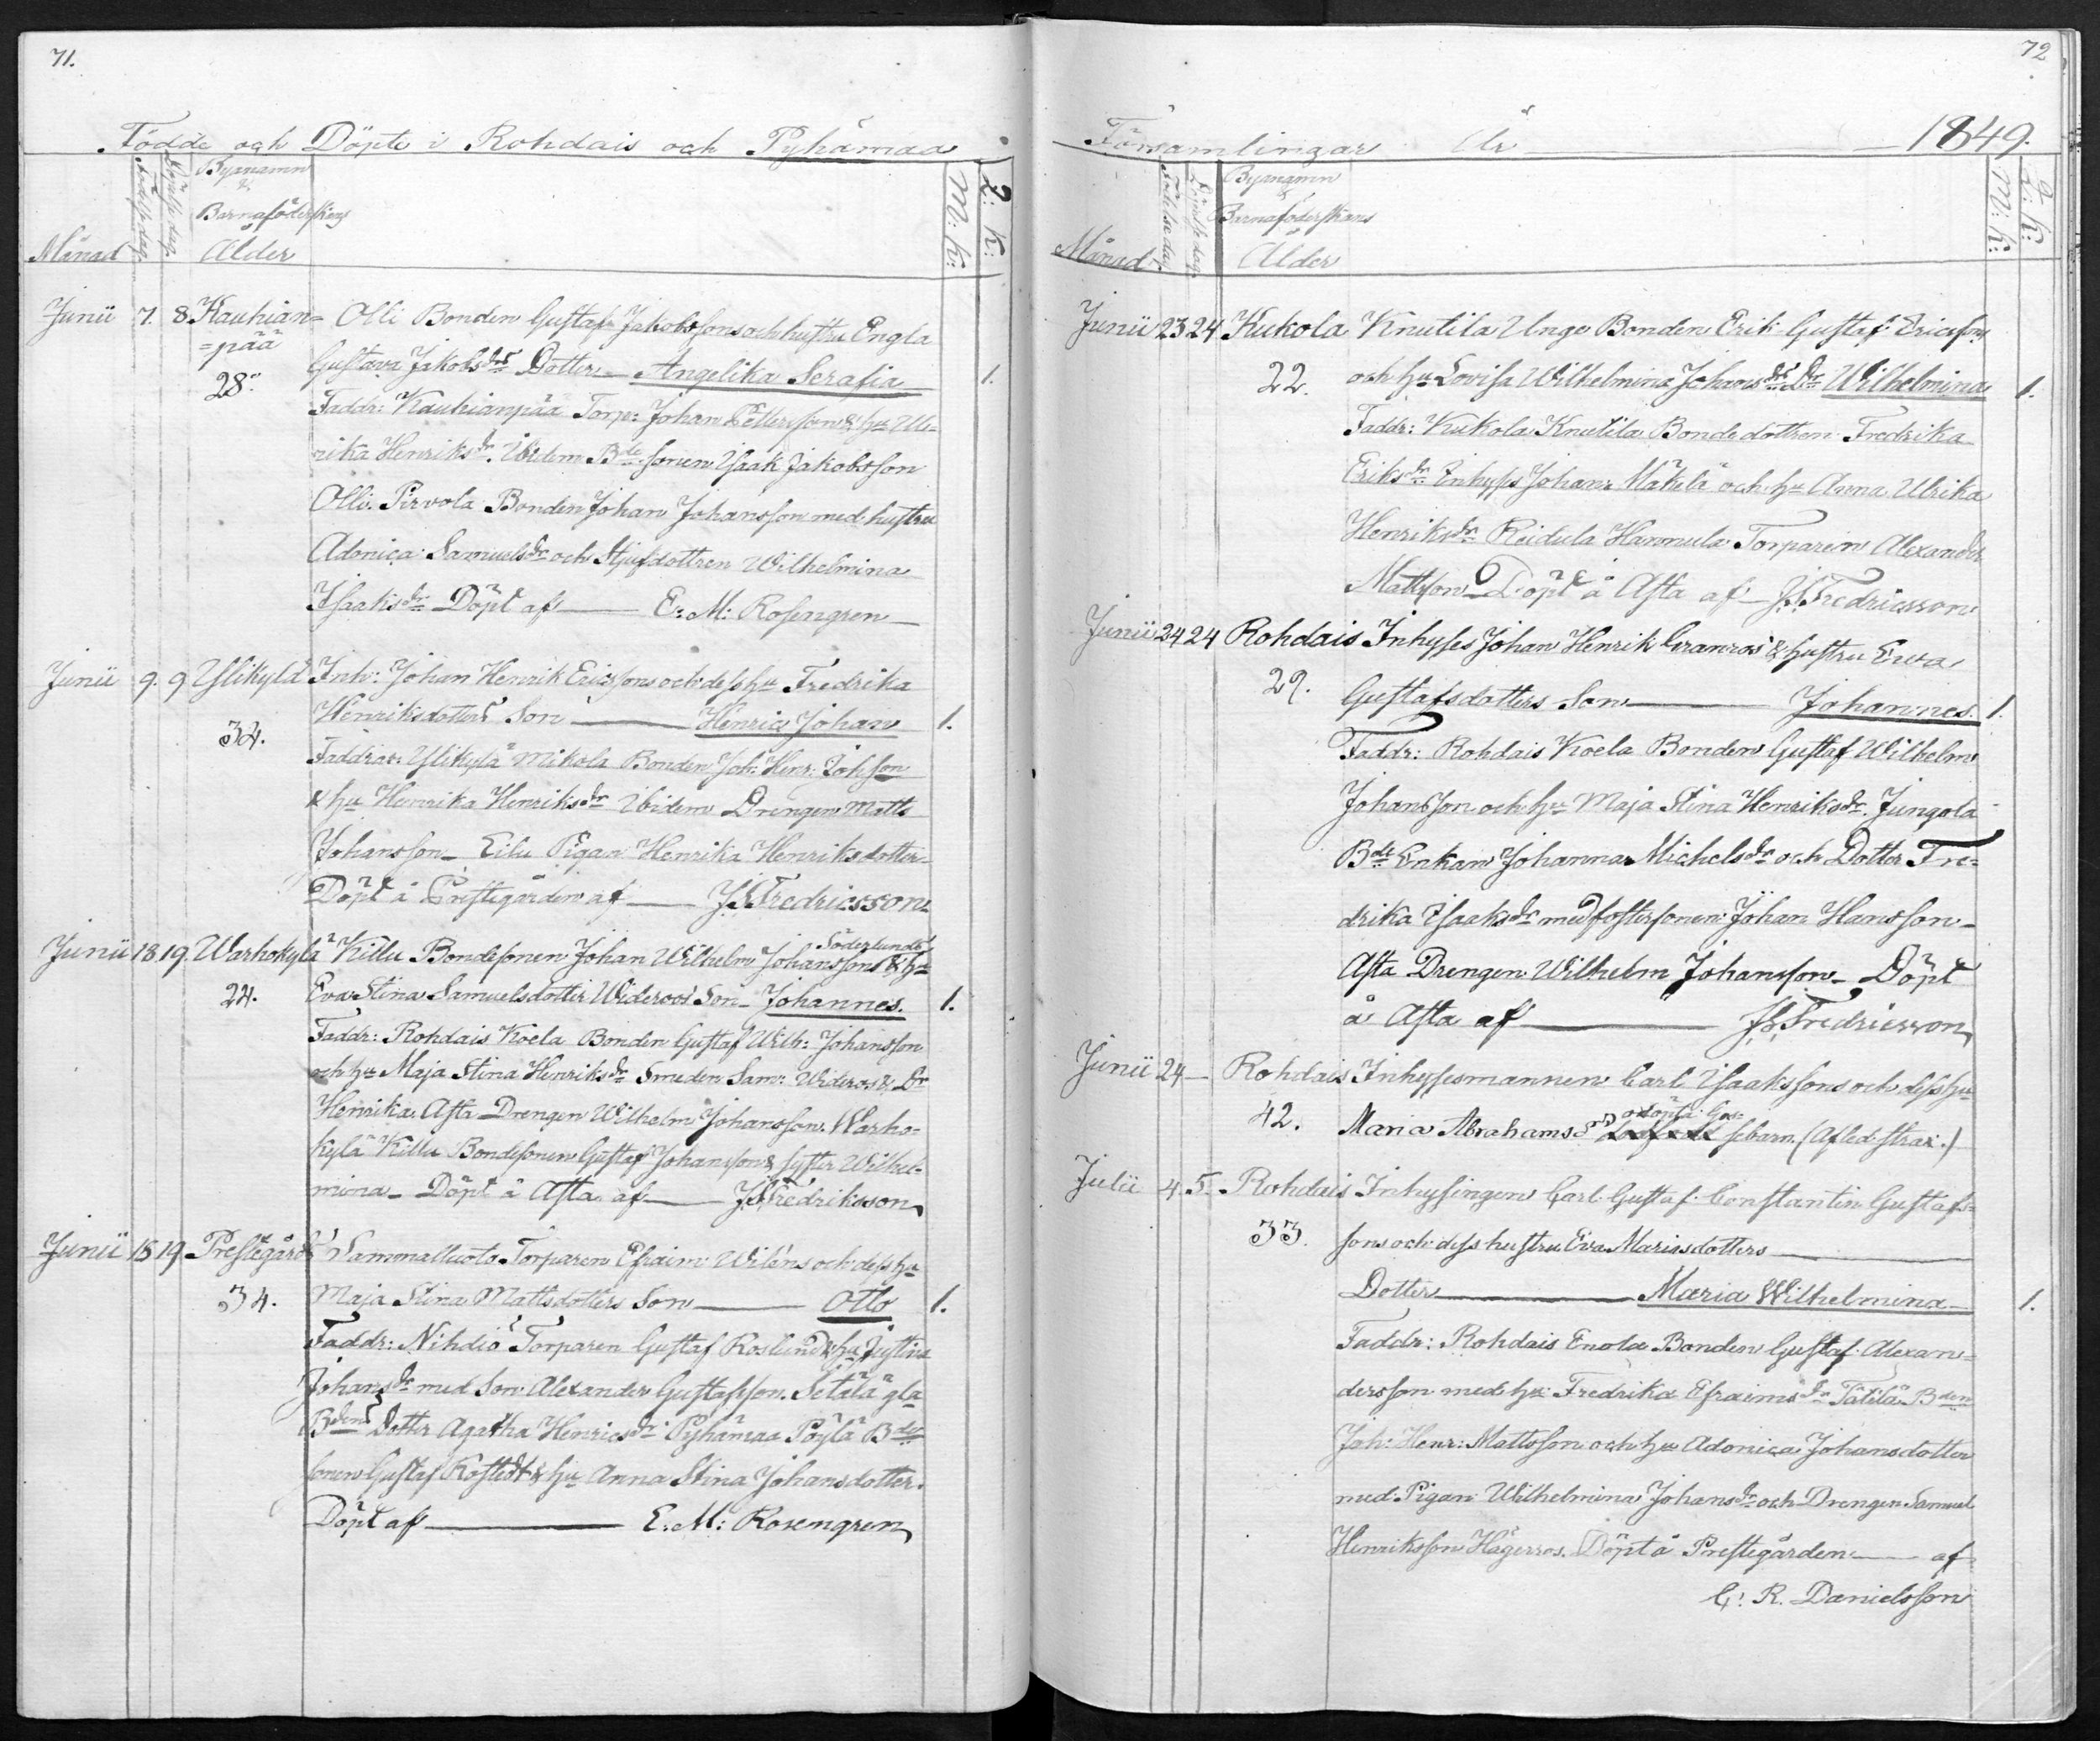 71.
Födde och Döpte i Rohdais och Pyhämaa
Månad
Födelsedag.
Döpelsedag.
Byanamn
&
Barnaföderskans
Ålder
M: K:
Q: K:
Junii 7. 8. Kauhian= Olli Bonden Gustaf Jakobssons och hustru Engla
=pää
28. Gustava Jakobsdrs Dotter Angelika Serafia 1.
Faddr: Kauhianpää Torp: Johan Pettersson & hu Ul=
rika Henriksdr. Ibidem Bde sonen Isaak Jakobsson
Olli. Pirvola Bonden Johan Johansson med hustru
Adonica Samuelsdr och Stjufdottren Wilhelmina
Isaaksdr Döpt af — E: M: Rosengren —
Junii 9. 9 Ylikylä Inh: Johan Henrik Ericssons och dess hu Fredrika
34. Henriksdotters Son — Henric Johan 1.
Faddrar: Ylikylä Mikola Bonden Joh: Henr: Johsson
& hu Henrika Henriksdr Ibidem Drengen Matts
Johansson — Eilu Pigan Henrika Henriksdotter
Döpt å Prestegården af — J. Fredricsson
Junii 18 19. Warhokylä Killu Bondesonen Johan Wilhelm Johansson Söderlunds & hu
24. Eva Stina Samuelsdotter Wideroos Son — Johannes. 1.
Faddr: Rohdais Koela Bonden Gustaf Wilh: Johansson
och hu Maja Stina Henriksdr Smeden Sam: Wideroos & Dr
Henrika. Asta Drengen Wilhelm Johansson. Warho=
kylä Killu Bondesonen Gustaf Johansson & syster Wilhel=
mina — Döpt å Asta af — J. Fredriksson
Junii 15 19 Prestegård Sammalluoto Torparen Efraim Wiléns och dess hu
34. Maja Stina Mattsdotters Son — Otto 1.
Faddr: Nihdiö Torparen Gustaf Roslund & hu Justina
Johansdr med Son Alexander Gustafsson. Setälä gla
Bdens Dotter Agatha Henricsdr Pyhämaa Pöylä Bde
sonen Gustaf Kostedt & hu Anna Stina Johansdotter.
Döpt af — E: M: Rosengren
72
Församlingar År — 1849.
Månad
Födelsedag
Döpelsedag
Byanamn
&
Barnaföderskans
Ålder
M: K:
Q: K:
Junii 23 24 Kukola Knutila Unge Bonden Erik Gustaf Ericssons
22. och hu Lovisa Wilhelmina Johansdrs Dr Wilhelmina 1.
Faddr: Kukola Knutila Bondedottren Fredrika
Eriksdr Inhyses Johan Mäkelä och hu Anna Ulrika
Henriksdr Reidula Hannula Torparen Alexander
Mattsson — Döpt å Asta af — J. Fredricsson
Junii 24 24 Rohdais Inhyses Johan Henrik Granros & hustru Ewa
29. Gustafsdotters Son — Johannes. 1.
Faddr: Rohdais Koela Bonden Gustaf Wilhelm
Johansson och hu Maja Stina Henriksdr. Jungola
Bde Enkan Johanna Michelsdr och Dotter Fre=
drika Isaaksdr med fostersonen Johan Hansson —
Asta Drengen Wilhelm Johansson — Döpt
å Asta af — J. Fredricsson
Junii 24 — Rohdais Inhysesmannen Carl Isaakssons och dess hu
42. Maria Abrahamsdrs odöpta Gos=
sebarn. (Afled strax.)
Julii 4. 5. Rohdais Inhysingen Carl Gustaf Constantin Gustafs=
33. sons och dess hustru Eva Mariasdotters —
Dotter — Maria Wilhelmina — 1.
Faddr: Rohdais Enola Bonden Gustaf Alexan=
dersson med hu Fredrika Efraimsdr Tätilä Bden
Joh: Henr: Mattsson och hu Adonica Johansdotter
med Pigan Wilhelmina Johansdr och Drengen Samuel
Henriksson Hägerros. Döpt å Prestegården — af
C: R. Danielsson